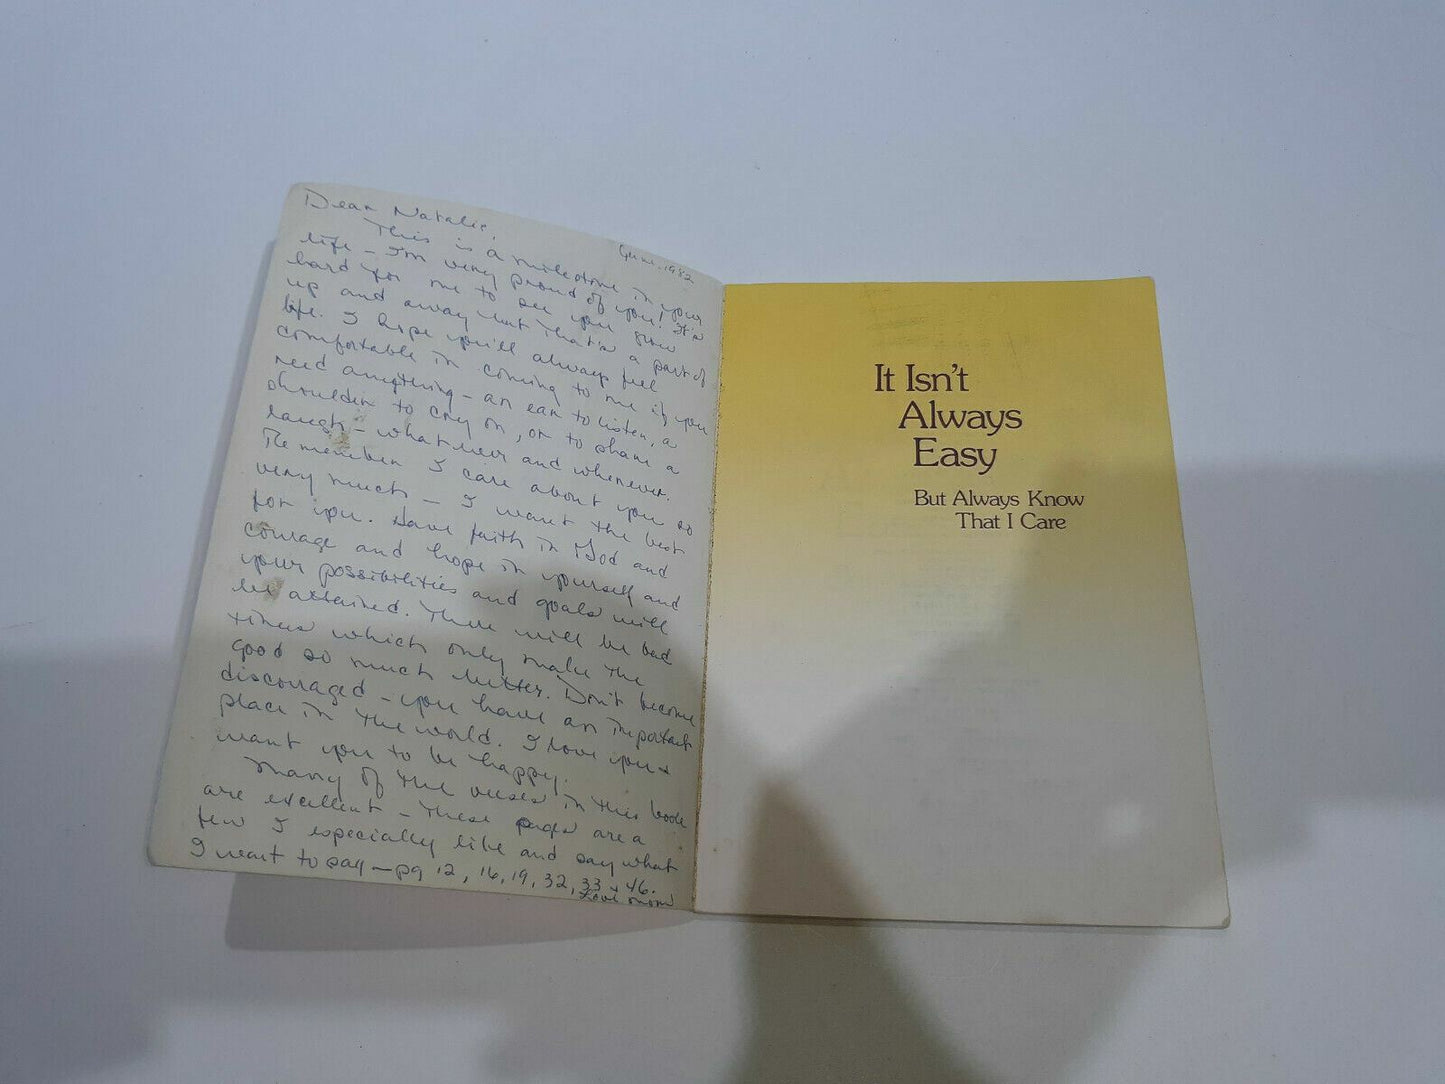 Dear Natalie,
June 1982
This is a milestone in your
life - I'm very proud of you! It's
hard for me to see you grow
up and away but that's a part of
life. I hope you'll always feel
comfortable in coming to me if you
need anything - an ear to listen, a
shoulder to cry on, or to share a
laugh - whatever and whenever.
Remember I care about you so
very much - I want the best
for you. Have faith in God and
courage and hope in yourself and
your possibilities and goals will
be attained. There will be bad
times which only make the
good so much better. Don't become
discouraged - you have an important
place in the world. I love you +
want you to be happy.
Many of the verses in this book
are excellent - These pages are a
few I especially like and say what
I want to say - pg 12, 16, 19, 32, 33 + 46.
Love mom
It Isn't
Always
Easy
But Always Know
That I Care